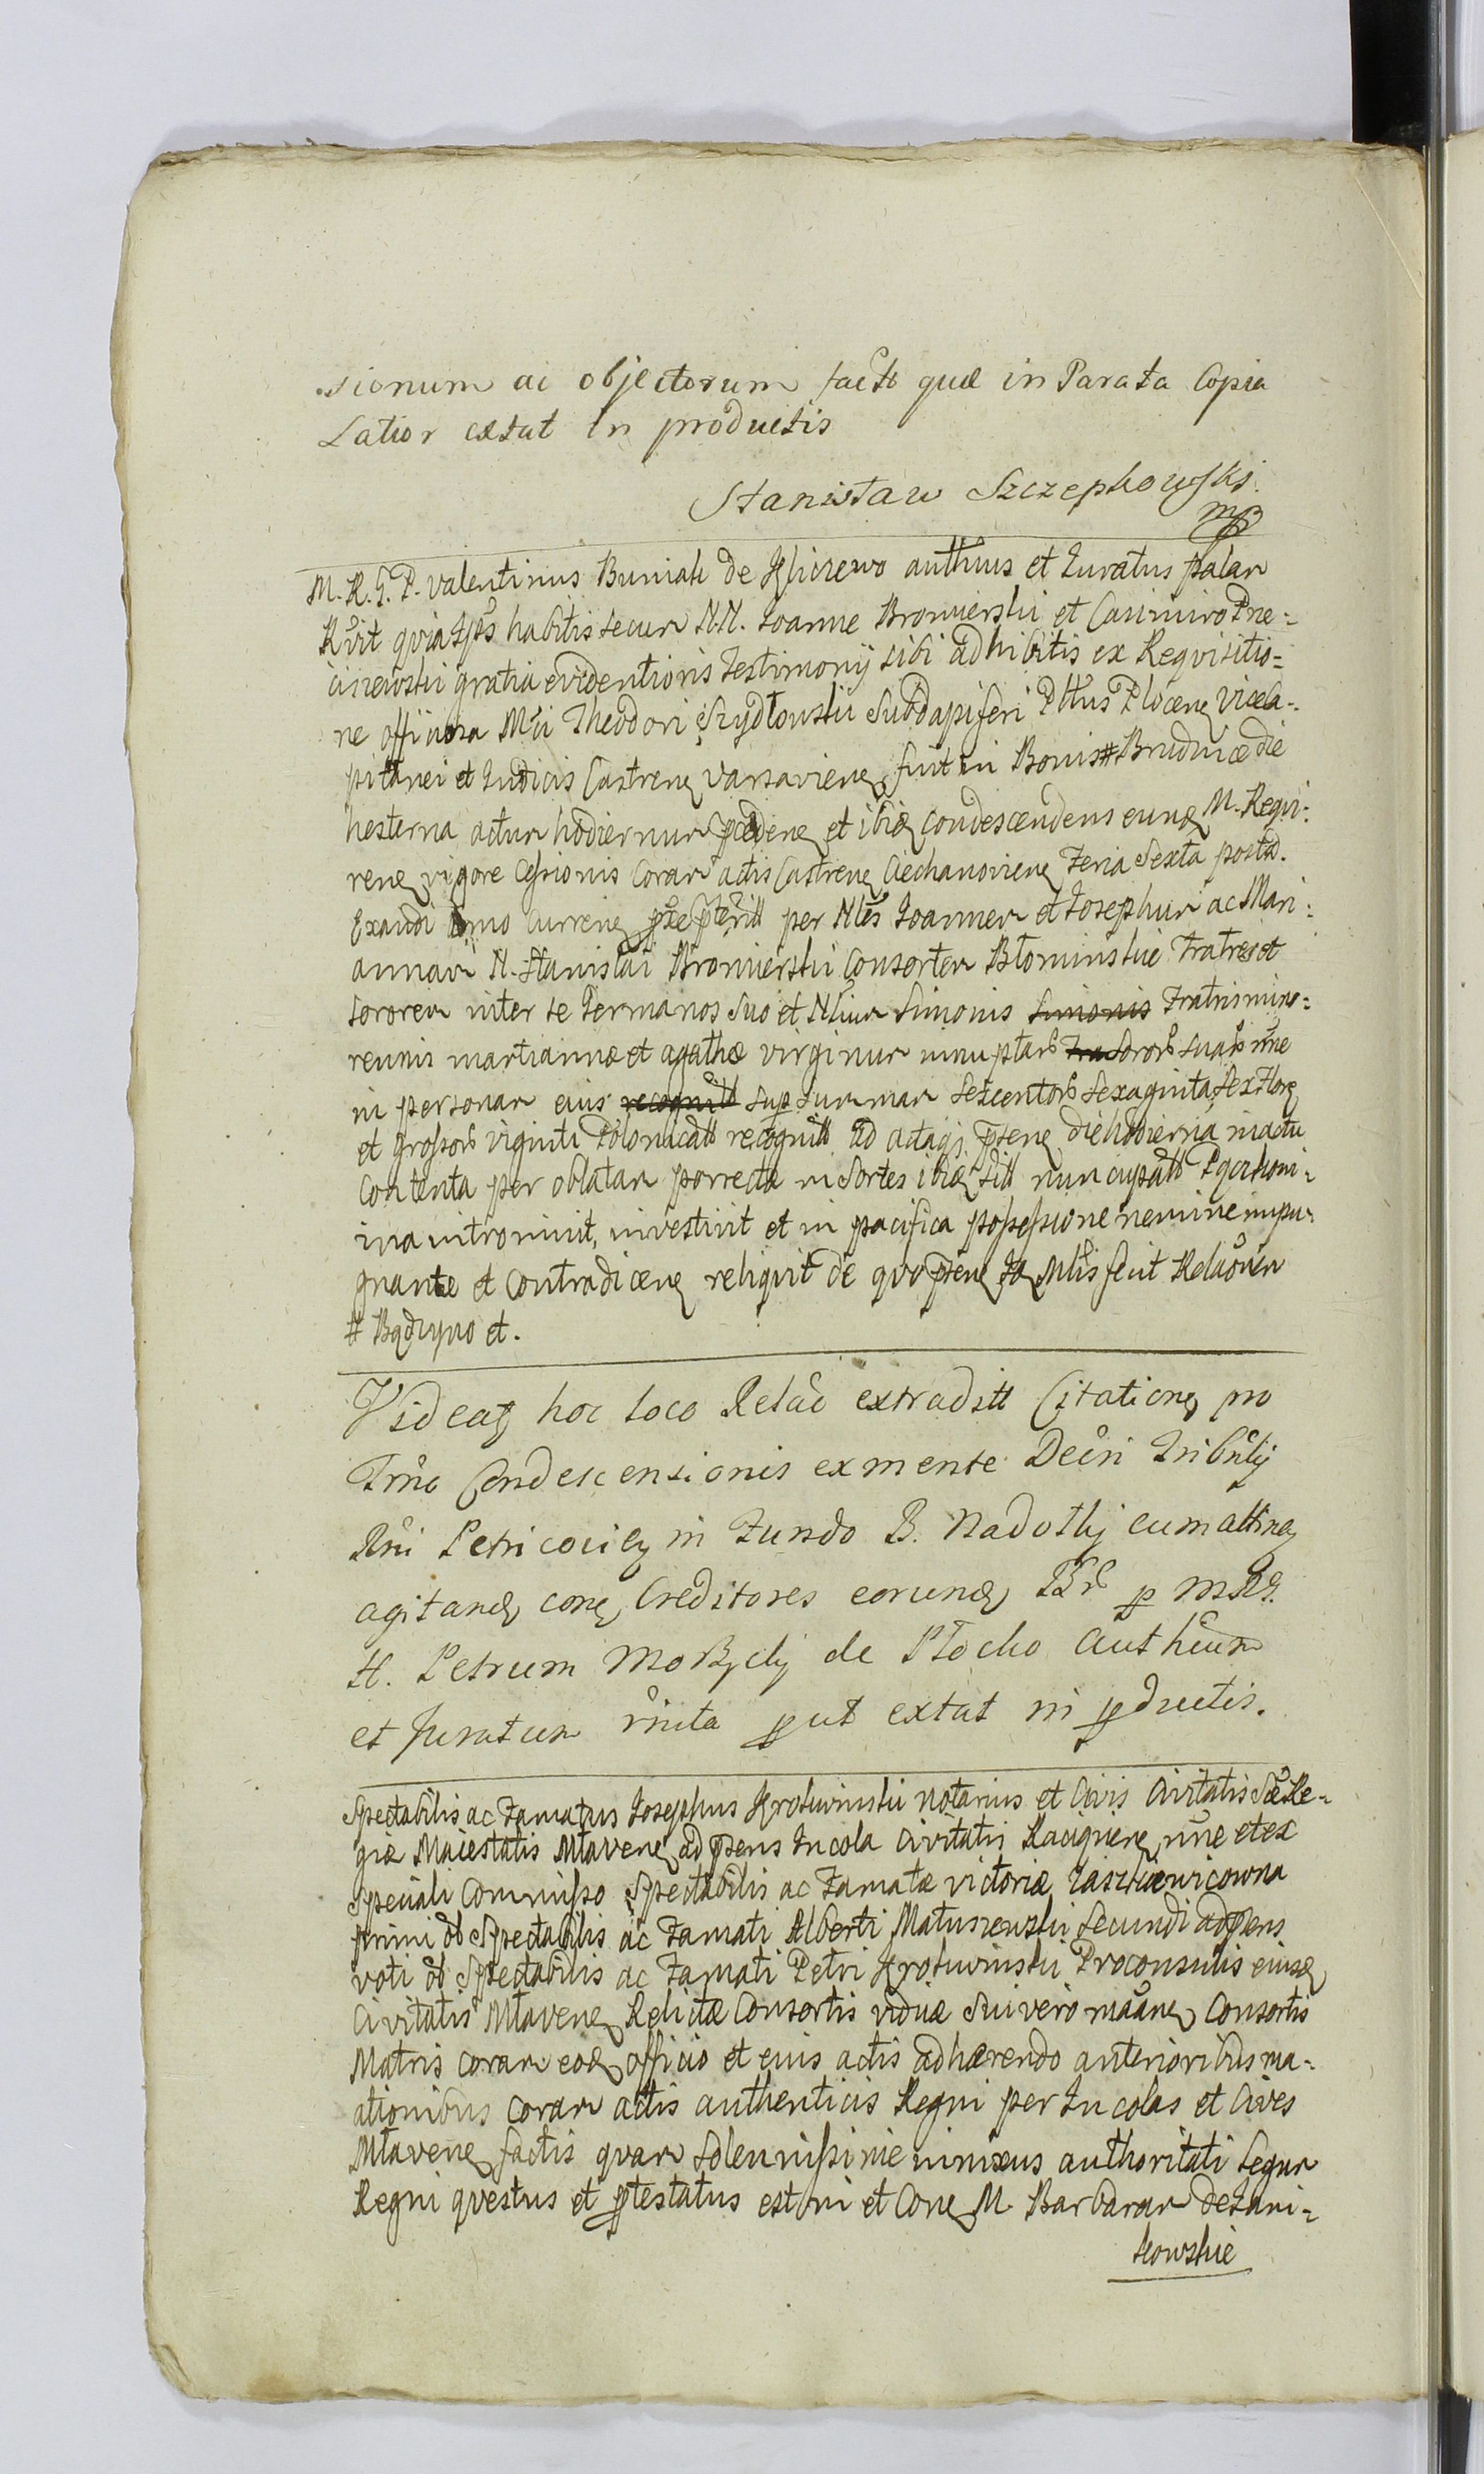 sionum ac objectorum factt quæ in Parata Copia
Latior extat in productis
Stanisław Szczepkowski
mp
M. R. G. P. Valentinus Buniak de Kliczewo authcus et Juratus palam
Rvit qvia Ipse habitis secum N.N. Joanne Bromierski et Casimiro Prze=
ciszewski gratia evidentioris Testimonij sibi adhibitis ex Reqvisitio=
ne officiosa Mci Theodori Szydłowski Subdapiferi Pttus Plocen Viceca-
pitanei et Judicis Castren Varsavien fuit in Bonis # Brudnice die
hesterna actum hodiernum pcæden et ibid condescendens eund M. Reqvi:
ren vigore Cessionis Coram actis Castren Ciechanovien Feria Sexta post d.
Exaudi Anno Curren per Nles Joannem et Josephum ac Mari=
annam N. Stanislai Bromierski Consortem Błominskie Fratres et
Sororem inter se Germanos suo et Nlium Simonis Simonis Fratris mino=
rennis martiannæ et agathæ virginum innuptarb Fra Sororb suarb nne
in personam eius recognitt sup summam Sexcentorb Sexaginta Sex Flor
et Grossorb viginti Polonicatt recognitt ad acta pſen die hodierna in actu
Contenta per oblatam porrecta in Sortes ibid sitt nuncupatt
ina intromisit, investivit et in pacifica possessione nemine impu=
gnante et Contradicen reliqvit de qvo pſen Ja Mtis fecit Relaõnem
# Bądzyno et.
Videat hoc loco Relao extraditt Citation pro
Trno Condescensionis ex mente Decri Tribnlij
Rni Petricovien in Fundo B. Nadołki cum attinen
agitand con Creditores eorund BB p MRG.
H. Petrum Morzycki de Płocko Authcum
et Juratum rnita put extat in pductis.
Spectabilis ac Famatus Josephus Krokwinski Notarius et Civis Civitatis Sæ Re=
giæ Maiestatis Młaven ad pſens Incola Civitatis Raciązen nne et ex
Speciali Commisso Spectabilis ac Famatæ victoriæ Łaszkiewicowna
primi ol Spectabilis ac Famati Alberti Matuszewski Secundi ad pſens
voti ol Spectabilis ac Famati Petri Krokwinski Proconsulis eiusd
Civitatis Młaven Relictæ Consortis viduæ Sui vero Consortis
Matris coram eod officio et eius actis adhærendo anterioribus ma=
ationibus coram actis authenticis Regni per Incolas et Cives
Młaven factis qvam Solennissime innixus authoritati Legum
Regni qvestus et ptestatus est in et Con M. Barbaram Dezani=
kowskie